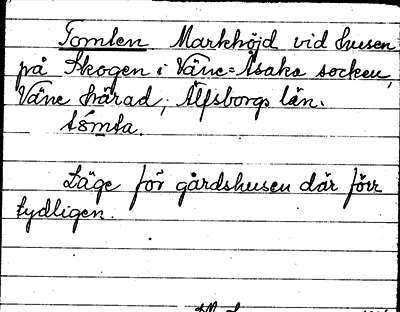 Tomten Markhöjd vid husen
på Skogen i Väne-Åsaka socken,
Väne härad, Älfsborgs län.
tómta.
Läge för gårdshusen där förr
tydligen.